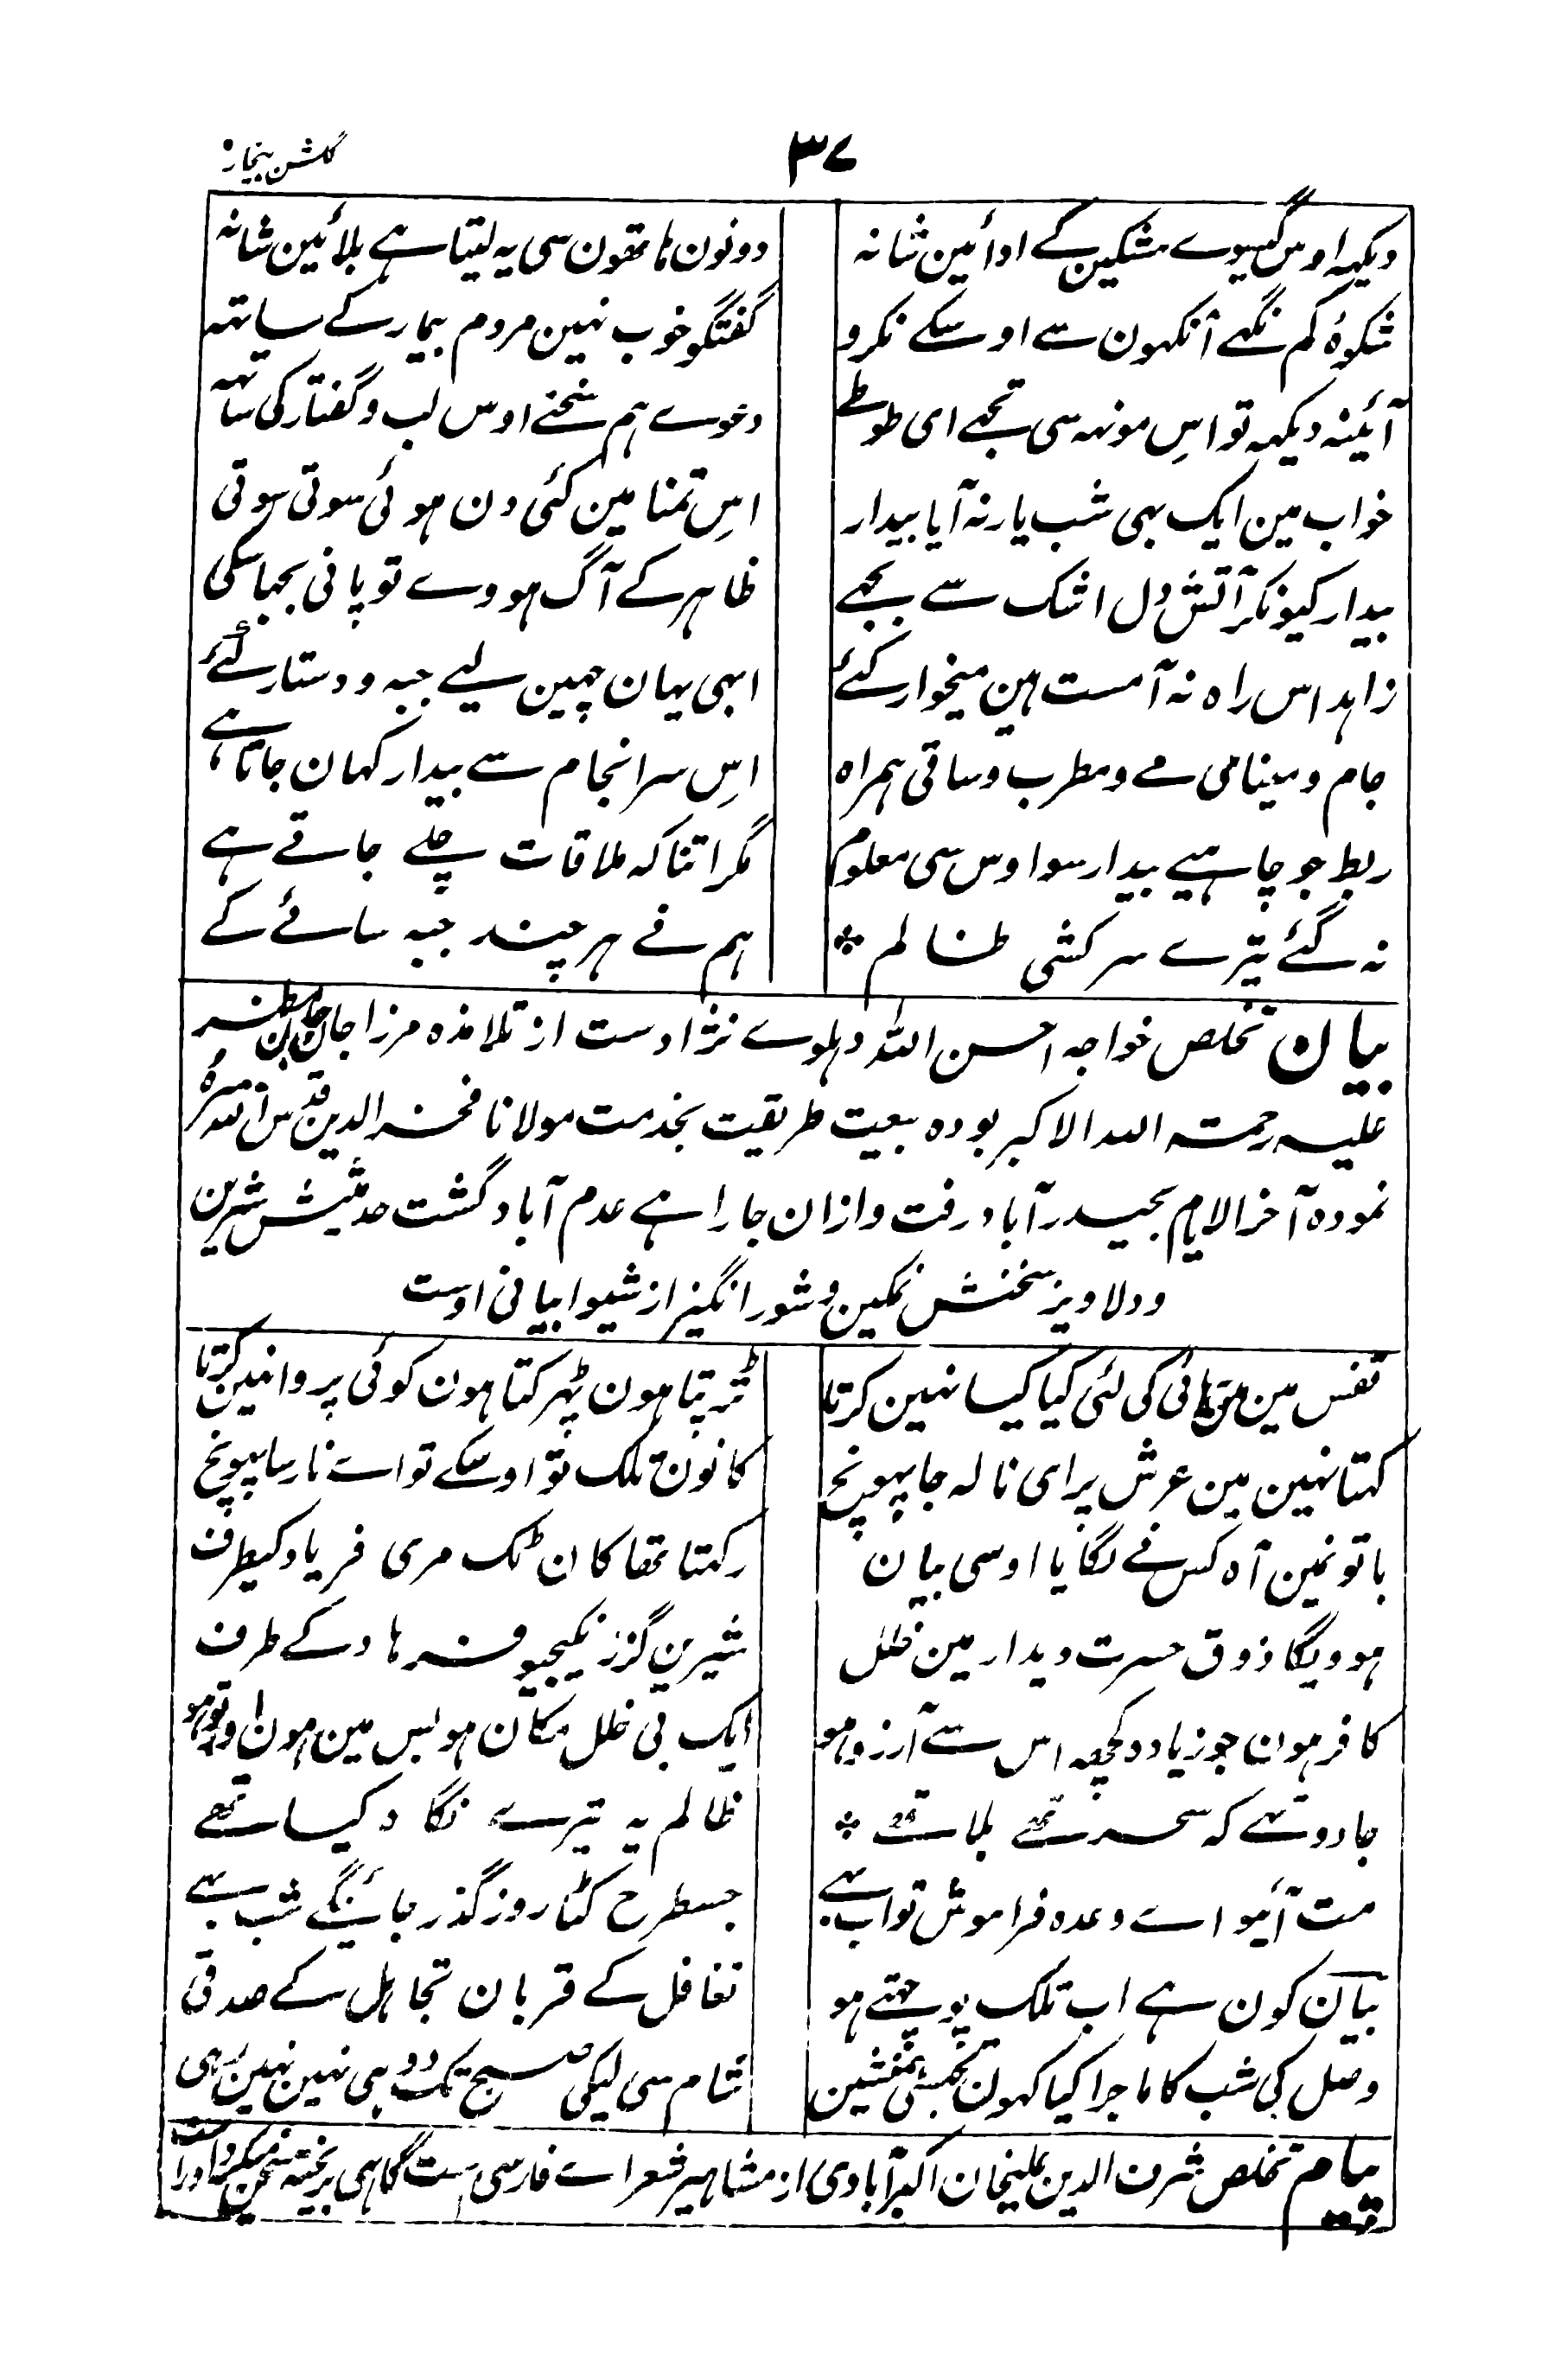 ۳۷
گلشن بیخار
دیکہہ اوس گیسوے مشکین کے ادائین شانہ
دونون ہاتھون سی یہ لیتا ہے بلائین شانہ
شکوۂ کم نگہے آنکہون سے اوسکے نکرو
گفتگو خوب نہین مردم بیمار کے ساتہہ
آئینہ دیکہہ تو اسِ مونہہ سی تجہے ای طوطے
دعوے ہم سخنے اوس لب و گفتار کی ساتہہ
خواب مین ایک بہی شب یار نہ آیا بیدار
اسِ تمنا مین کئی دن ہوئی سوتی سوتی
بیدار کیونکر آتش دل اشک سے بجہے
ظاہر کے آگ ہووے تو پانی بجہا سکی
زاہد اس راہ نہ آ مست ہین میخوار کئے
ابہی یہان چہین لیے جبہ و دستار کئے
جام و مینا می مے و مطرب و ساقی ہمراہ
اسِ سرانجام سے بیدار کہان جاتا ہے
ربط جو چاہیے بیدار سوا اوس سی معلوم
مگر اتنا کہ ملاقات چلے جاتے ہے
نہ گئے تیرے سرکشی ظالم *
ہم نے ہر چند جبہ سائے کے
بیان تخلص خواجہ احسن اللہ دہلوے نژادست از تلامذہ مرزا جان جانان مظہر
علیہ رحمتہ اللہ الاکبر بودہ بیعت طریقت بخدمت مولانا فخر الدین قدس اللہ سرہ
نمودہ آخر الایام بحیدرآباد رفت و ازان جا راہے عدم آباد گشت حدیثش شیرین
و دلاویز سخنش نمکین و شور انگیز از شیوا بیانی اوست
قفس مین مین رہائی کی لئی کیا کیا نہین کرتا
تڑپتا ہون پٹہرکتا ہون کوئی پروا نہین کرتا
کہتا نہین مین عرش پر ای نالہ جا پہونچ
کانون تلک تو اوسکے تو اے نارسا پہونچ
باتو نمین آہ کس نے لگایا اوسی بیان
رکہتا تھا کان ٹک مری فریاد کیطرف
ہوویگا ذوق حسرت دیدار مین خلل
شیرین گزر نکیجیو فرہاد کے طرف
کافر ہون جو زیادہ کچھہ اس سے آرزو ہو
ایک بی خلل مکان ہو بس مین ہون اور تو ہو
جادو تہے کہ سحر تہے بلا تہے *
ظالم یہ تیرے نگاہ کیا تہے
مت آئیو اے وعدہ فراموش تو اب بہے
جسطرح کٹا روز گذر جائیگے شب بہے
بیان کون ہے اب تلک پوچہتے ہو
تغافل کے قربان تجاہل کے صدقی
وصل کی شب کا ماجرا کیا کہون تجہسی ہمنشین
شام سی لیکی صبح تک دو ہی نہین نہین رہی
پیام تخلص شرف الدین علیخان اکبرآبادی از مشاہیر شعراے فارسی ست گاہی بریختہ سخن میکردہ اوراست